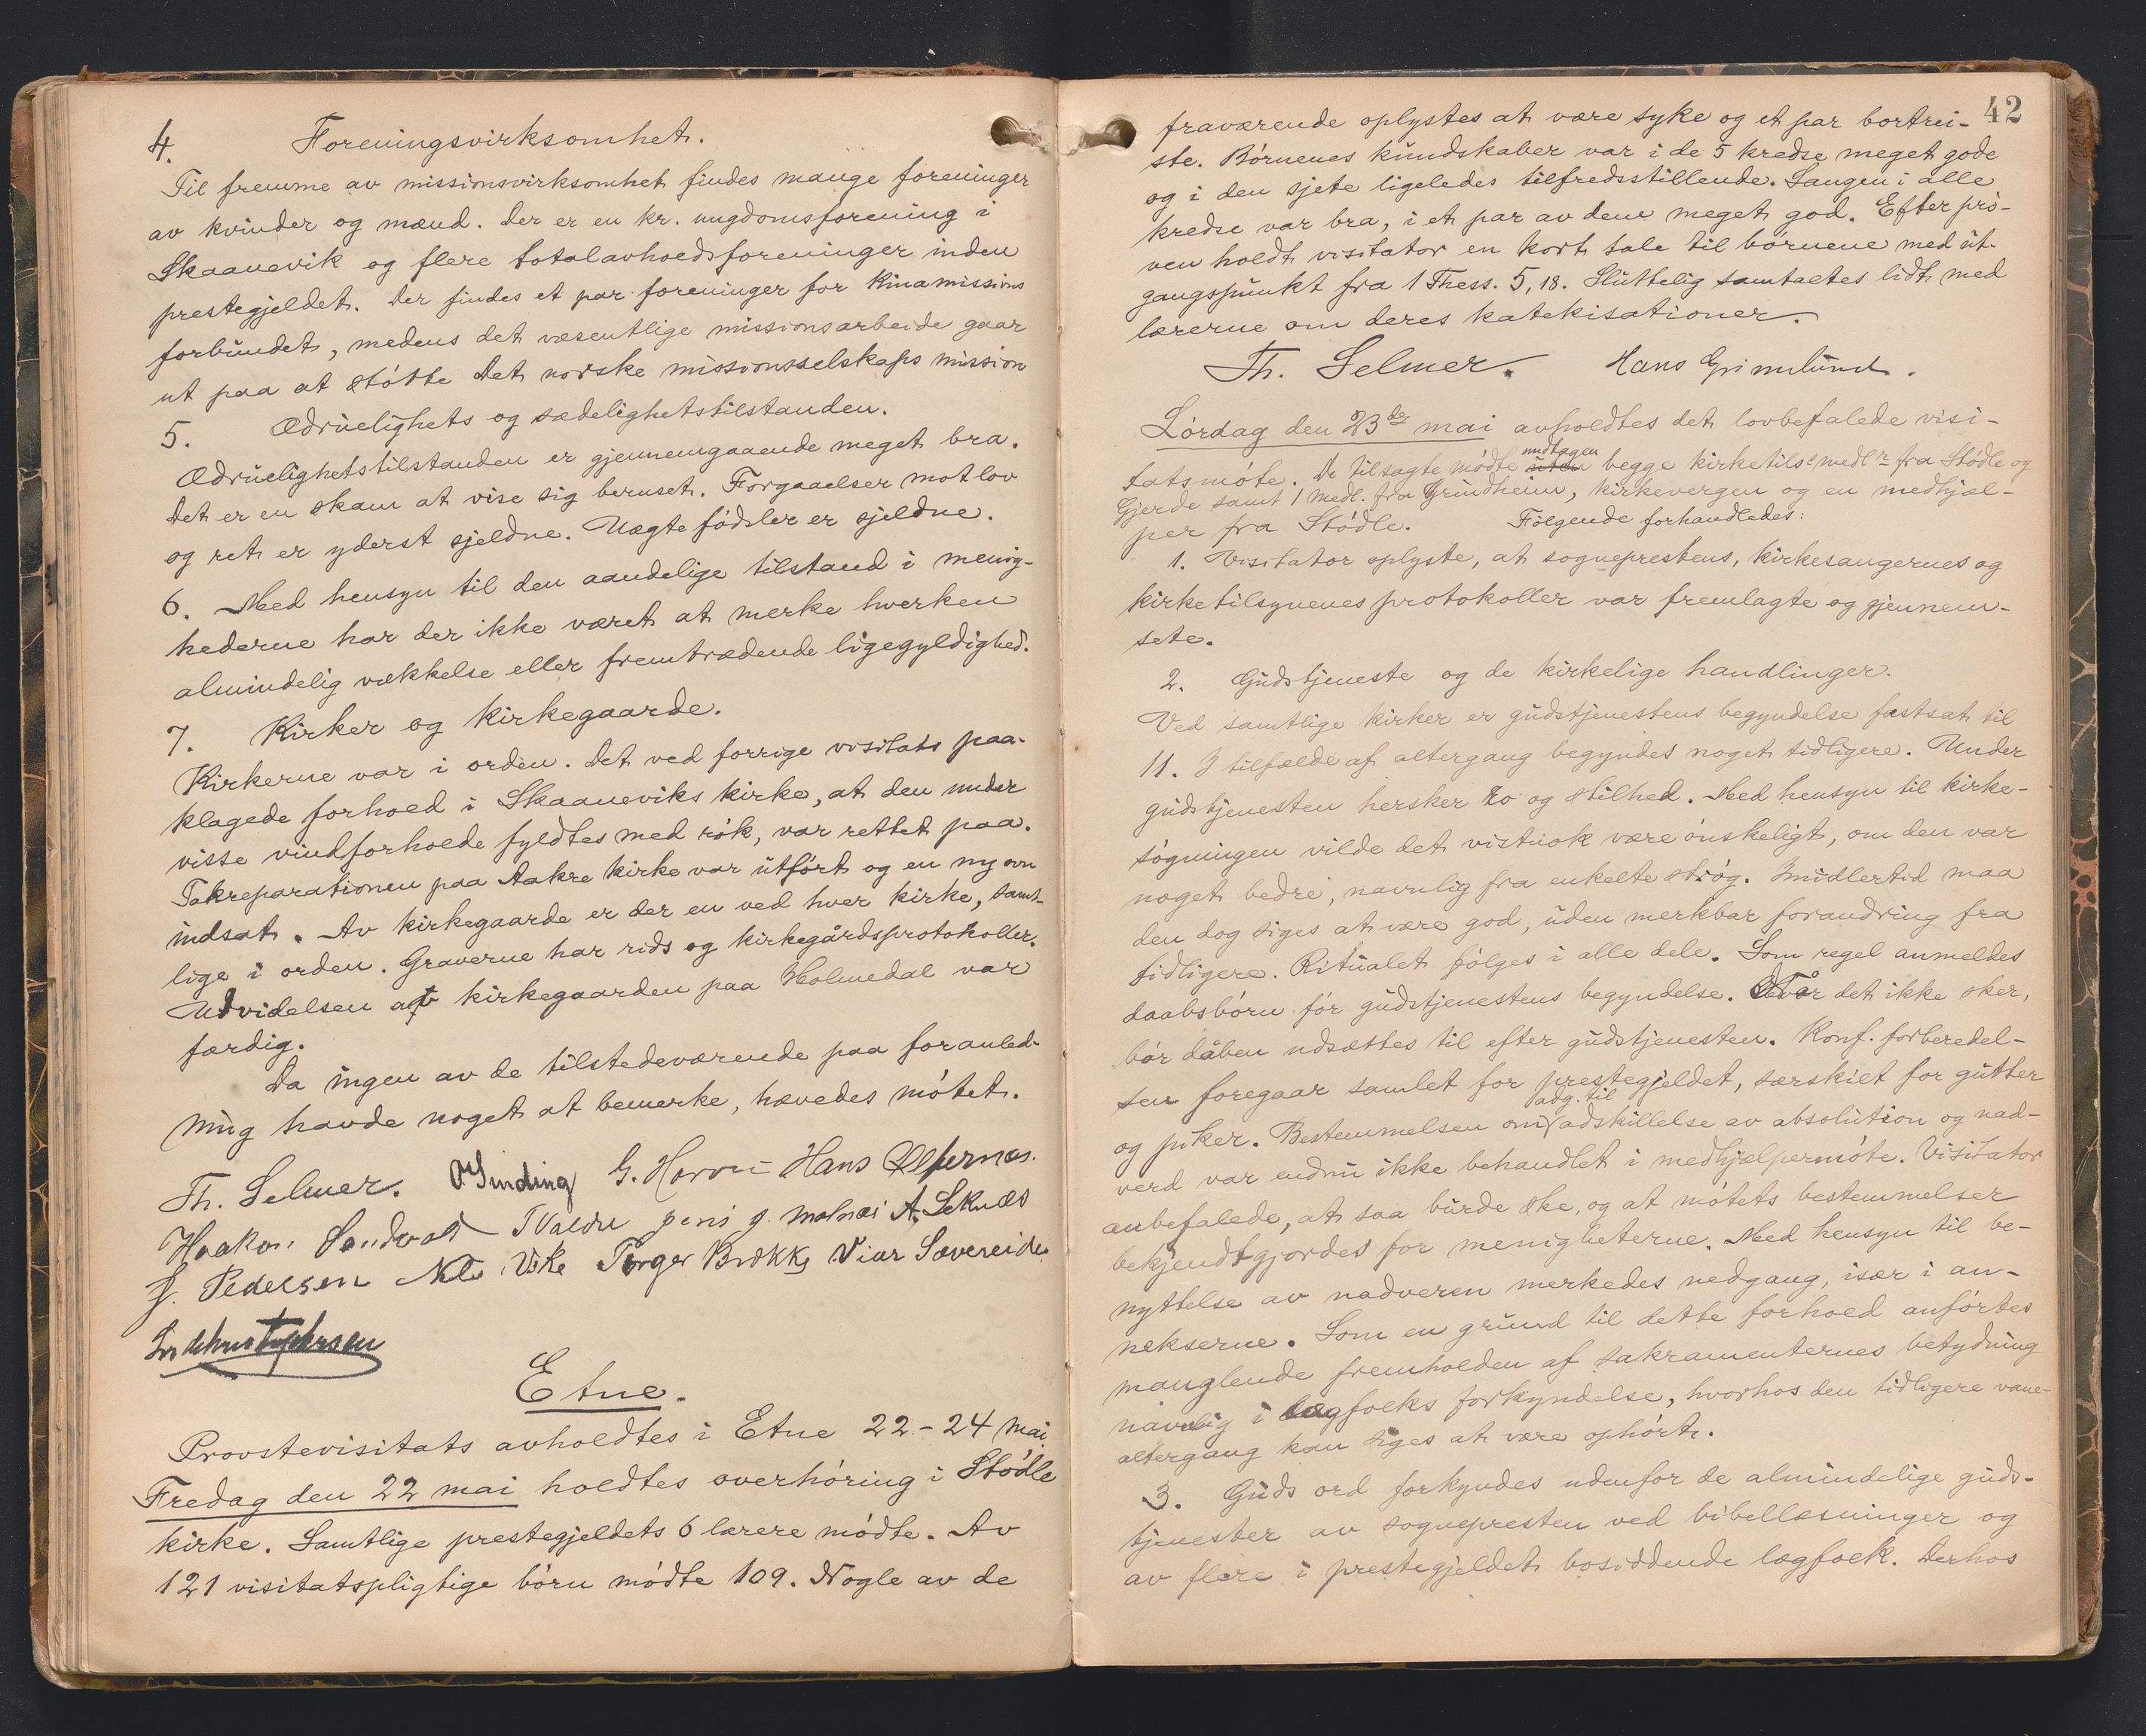 4. Foreningsvirksomhet.
Til fremme av missionsvirksomhet findes mange foreninger
av kvinder og mænd. Der er en kr. ungdomsforening i
Skaanevik og flere totalavholdsforeninger inden
prestegjeldet. Der findes et par foreninger for Kinamissions
forbundet, medens det væsentlige missionsarbeide gaar
ut paa at støtte Det norske missionsselskaps mission
5. Ædruelighets og sædelighetstilstanden.
Ædruelighetstilstanden er gjennemgaaende meget bra.
Det er en skam at vise sig beruset. Forgaaelser mot lov
og ret er yderst sjeldne. Uægte fødsler er sjeldne.
6. Med hensyn til den aandelige tilstand i menig-
hederne har der ikke været at merke hverken
almindelig vækkelse eller fremtrædende ligegyldighed.
7. Kirker og kirkegaarde.
Kirkerne var i orden. Det ved forrige visitats paa-
klagede forhold i Skaaneviks kirke, at den under
visse vindforholde fyldtes med røk, var rettet paa.
Takreparationen paa Aakre kirke var utført og en ny ovn
indsat. Av kirkegaarde er der en ved hver kirke, samt-
lige i orden. Graverne har rids og kirkegårdsprotokoller.
Udvidelsen av kirkegaarden paa Holmedal var
færdig.
Da ingen av de tilstedeværende paa foranled-
ning havde noget at bemerke, hævedes møtet.
Th. Selmer. Sinding G. Hans
Haakon Sandvad J. A. Leknes
J. Pedersen Nils Vike Torger Brække Viar Sævereide

Etne.
Provstevisitats avholdtes i Etne 22-24 mai
Fredag den 22 mai holdtes overhøring i Stødle
kirke. Samtlige prestegjeldets 6 lærere mødte. Av
121 visitatspligtige børn mødte 109. Nogle av de
42
fraværende oplystes at være syke og et par bortrei-
ste. Børnenes kundskaber var i de 5 kredse meget gode
og i den sjete ligeledes tilfredsstillende. Sangen i alle
kredse var bra, i et par av dem meget god. Efter prø-
ven holdt visitator en kort tale til børnene med ut-
gangspunkt fra 1 Thess. 5,18. Sluttelig samtaltes lidt med
lærerne om deres katekisationer.
Th. Selmer. Hans Grimelund.
Lørdag den 23de mai avholdtes det lovbefalede visi-
tatsmøte. De tilsagte mødte uten undtagen begge kirketils. medlr fra Stødle og
Gjerde samt 1 medl. fra Grindheim, kirkevergen og en medhjæl-
per fra Stødle. Følgende forhandledes:
1. Visitator oplyste, at sogneprestens, kirkesangernes og
kirketilsynenes protokoller var fremlagte og gjennem-
sete.
2. Gudstjeneste og de kirkelige handlinger.
Ved samtlige kirker er gudstjenestens begyndelse fastsat til
11. I tilfælde af altergang begyndes noget tidligere. Under
gudstjenesten hersker ro og stilhed. Med hensyn til kirke-
søgningen vilde det vistnok være ønskeligt, om den var
noget bedre, navnlig fra enkelte strøg. Imidlertid maa
den dog siges at være god, uden merkbar forandring fra
tidligere. Ritualet følges i alle dele. Som regel anmeldes
daabsbørn før gudstjenestens begyndelse. Når det ikke sker,
bør dåben udsættes til efter gudstjenesten. Konf. forberedel-
sen foregaar samlet for prestegjeldet, særskilt for gutter
og piker. Bestemmelsen om adg. til adskillelse av absolution og nad-
verd var endnu ikke behandlet i medhjælpermøte. Visitator
anbefalede, at saa burde ske, og at møtets bestemmelser
bekjendtgjordes for menigheterne. Med hensyn til be-
nyttelse av nadveren merkedes nedgang, især i an-
nekserne. Som en grund til dette forhold anførtes
manglende fremholden af sakramenternes betydning
navnlig i lægfolks forkyndelse, hvorhos den tidligere vane-
altergang kan siges at være ophørt.
3. Guds ord forkyndes udenfor de almindelige guds-
tjenester av sognepresten ved bibellæsninger og
av flere i prestegjeldet bosiddende lægfolk. Derhos